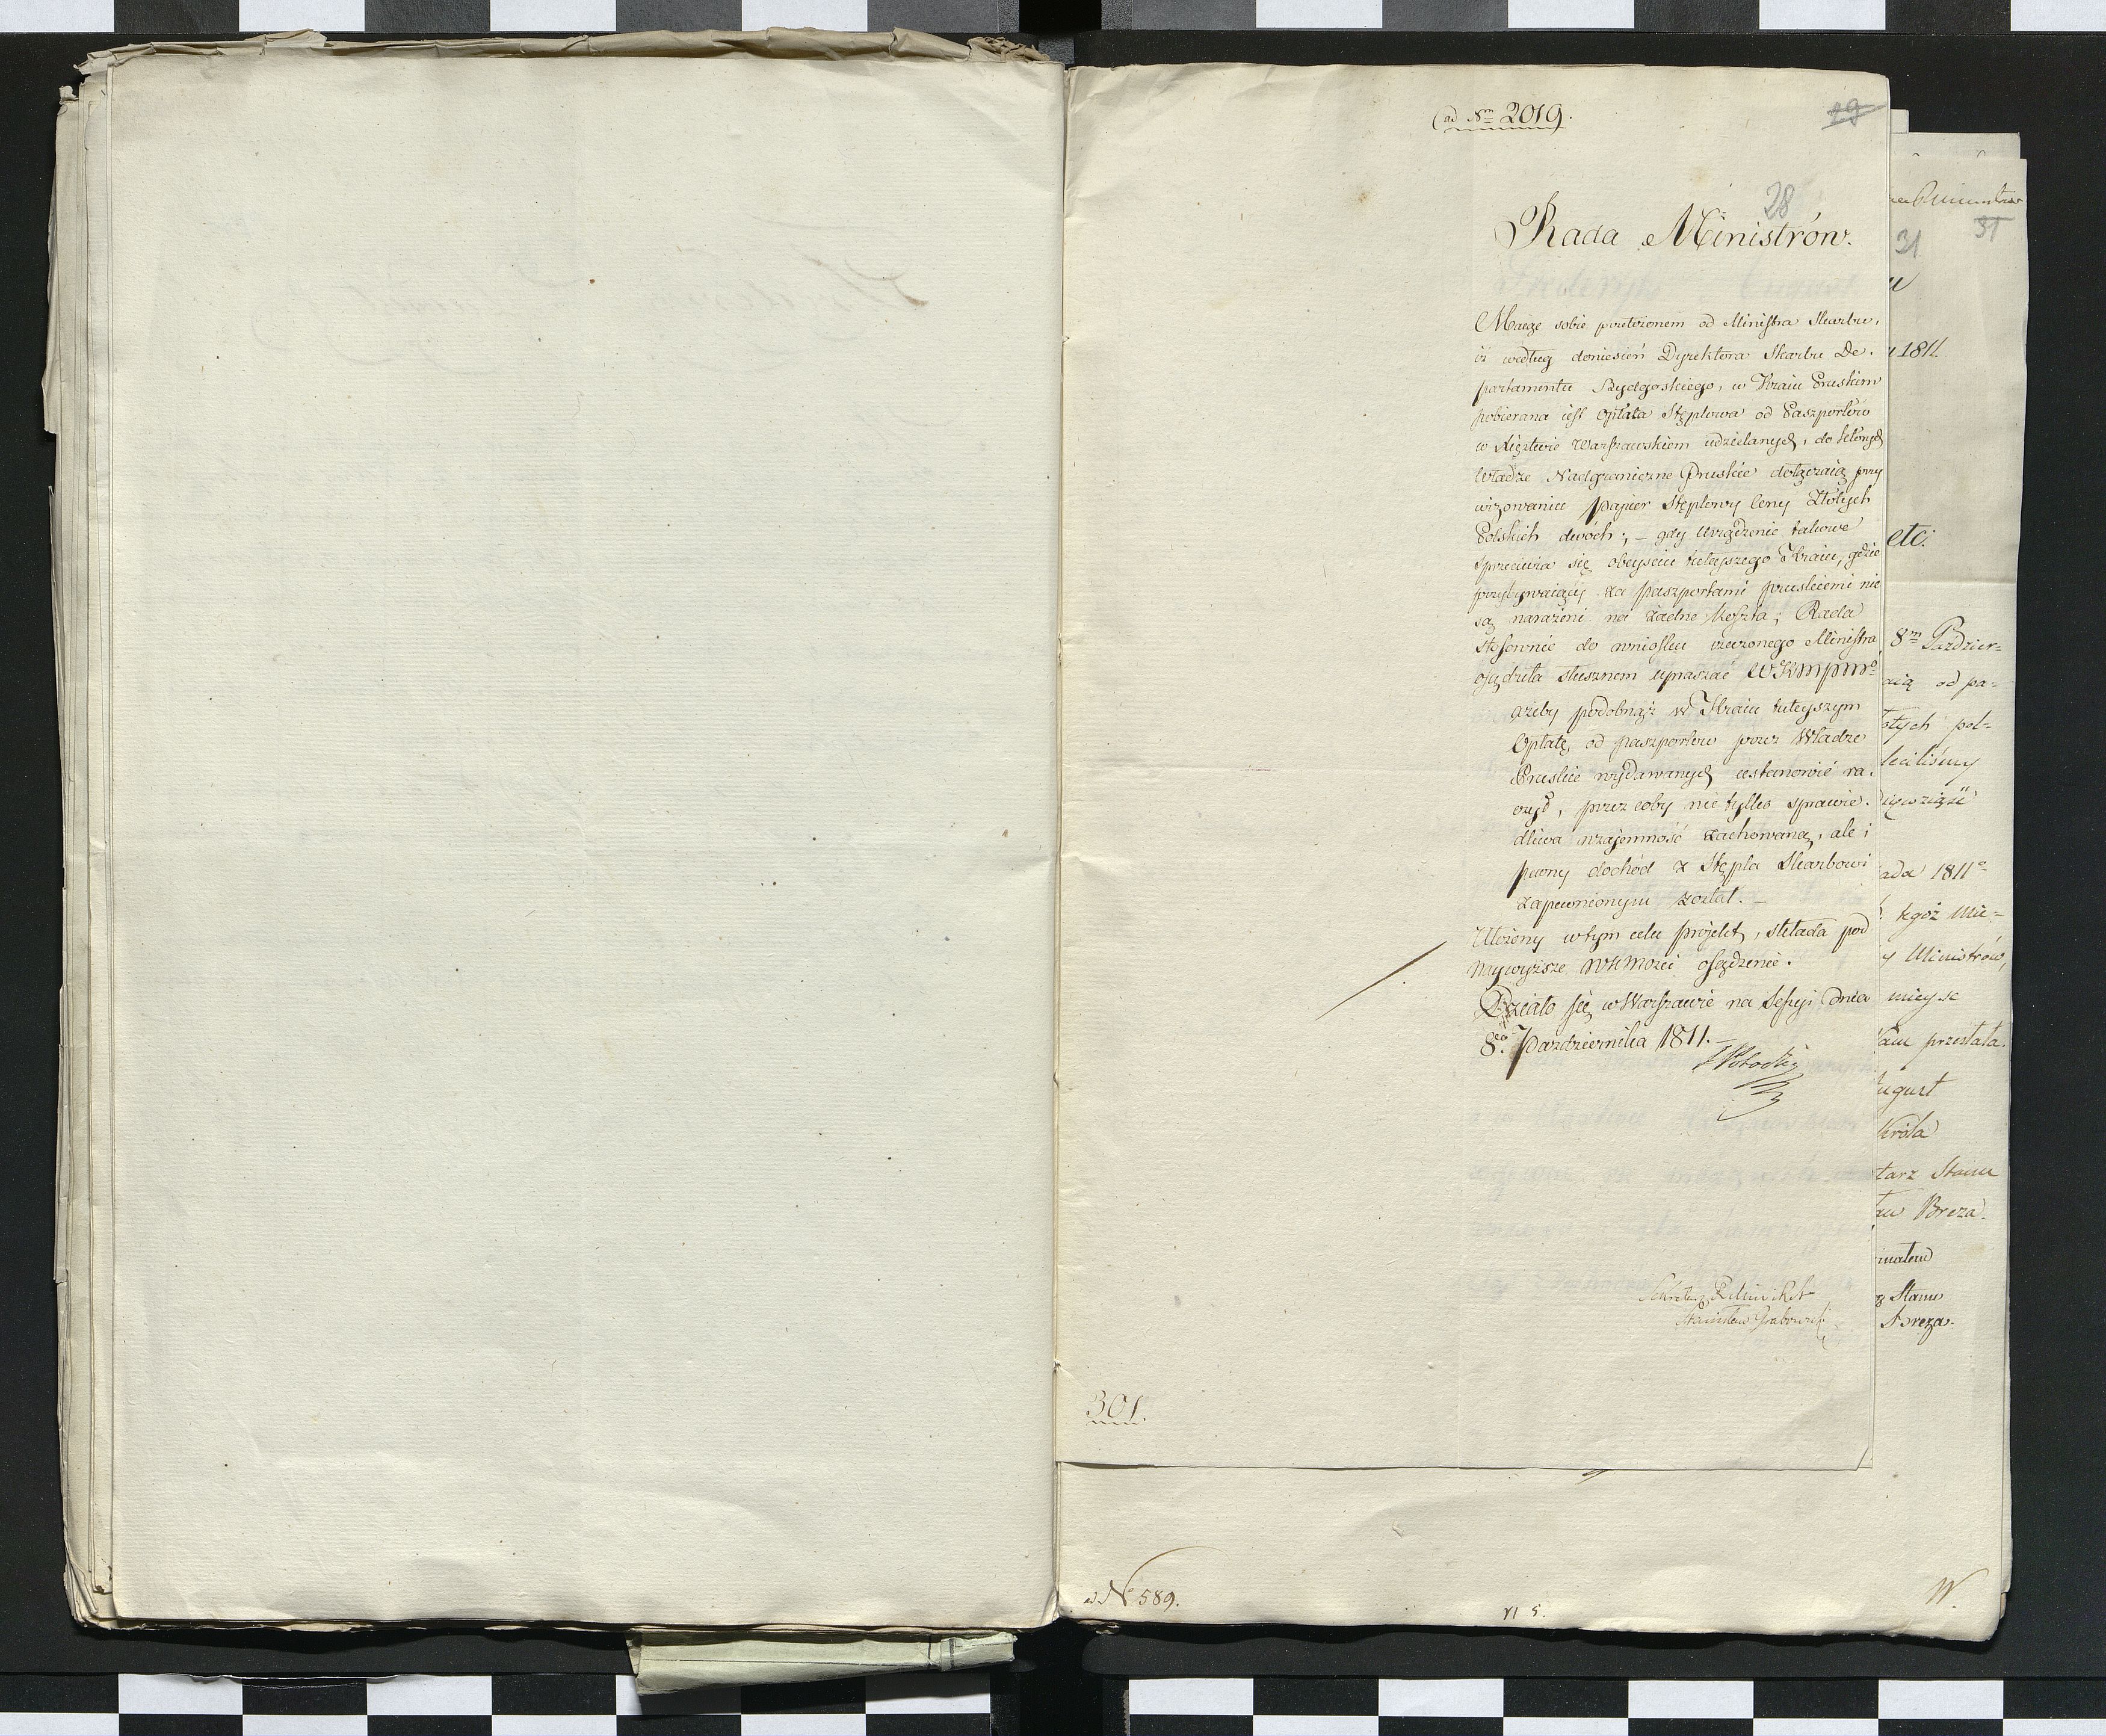 ad Nm 2019.
19
28
Rada Ministrów.
Maiąc sobie przełożonem od Ministra Skarbu,
iż według doniesień Dyrektora Skarbu De-
partamentu Bydgoskiego, w Kraiu Pruskim
pobierana iest Opłata Stęplowa od Paszportów
w Xięstwie Warszawskiem udzielanych, do których
Władze Nadgraniczne Pruskie dołączaią przy
wizowaniu papier Stęplowy Ceny Złotych
Polskich dwóch; – gdy Urządzenie takowe
sprzeciwia się obeyściu tuteyszego Kraiu, gdzie
przybywaiący za paszportami pruskiemi nie
są narażeni na żadne koszta; Rada
stosownie do wniosku rzeczonego Ministra
osądziła słusznem upraszać WKMPMo
ażeby podobnąż w Kraiu tuteyszym
Opłatę, od paszportów przez Władze
Pruskie wydawanych ustanowić ra-
czył, przez coby nie tylko sprawie-
dliwa wzajemność zachowaną, ale i
pewny dochód z Stępla Skarbowi
zapewnionym został. –
Ułożony w tym celu projekt, składa pod
Naywyższe WKMości osądzenie.
Działo się w Warszawie na Sessyi dnia
8go Października 1811. –
Potocki
Sekretarz
Stanisław Grabowski
301.
ad No 589.
VI 5.
W.
31
31
u
1811
etc.
8m Paździer-
aią od pa-
otych pol-
leciliśmy
ada 1811o
tegoż Mie-
y Ministrów,
mieysc
Nam przesłała.
ugust
Króla
tarz Stanu
aw Breza.
Stanu
Breza.